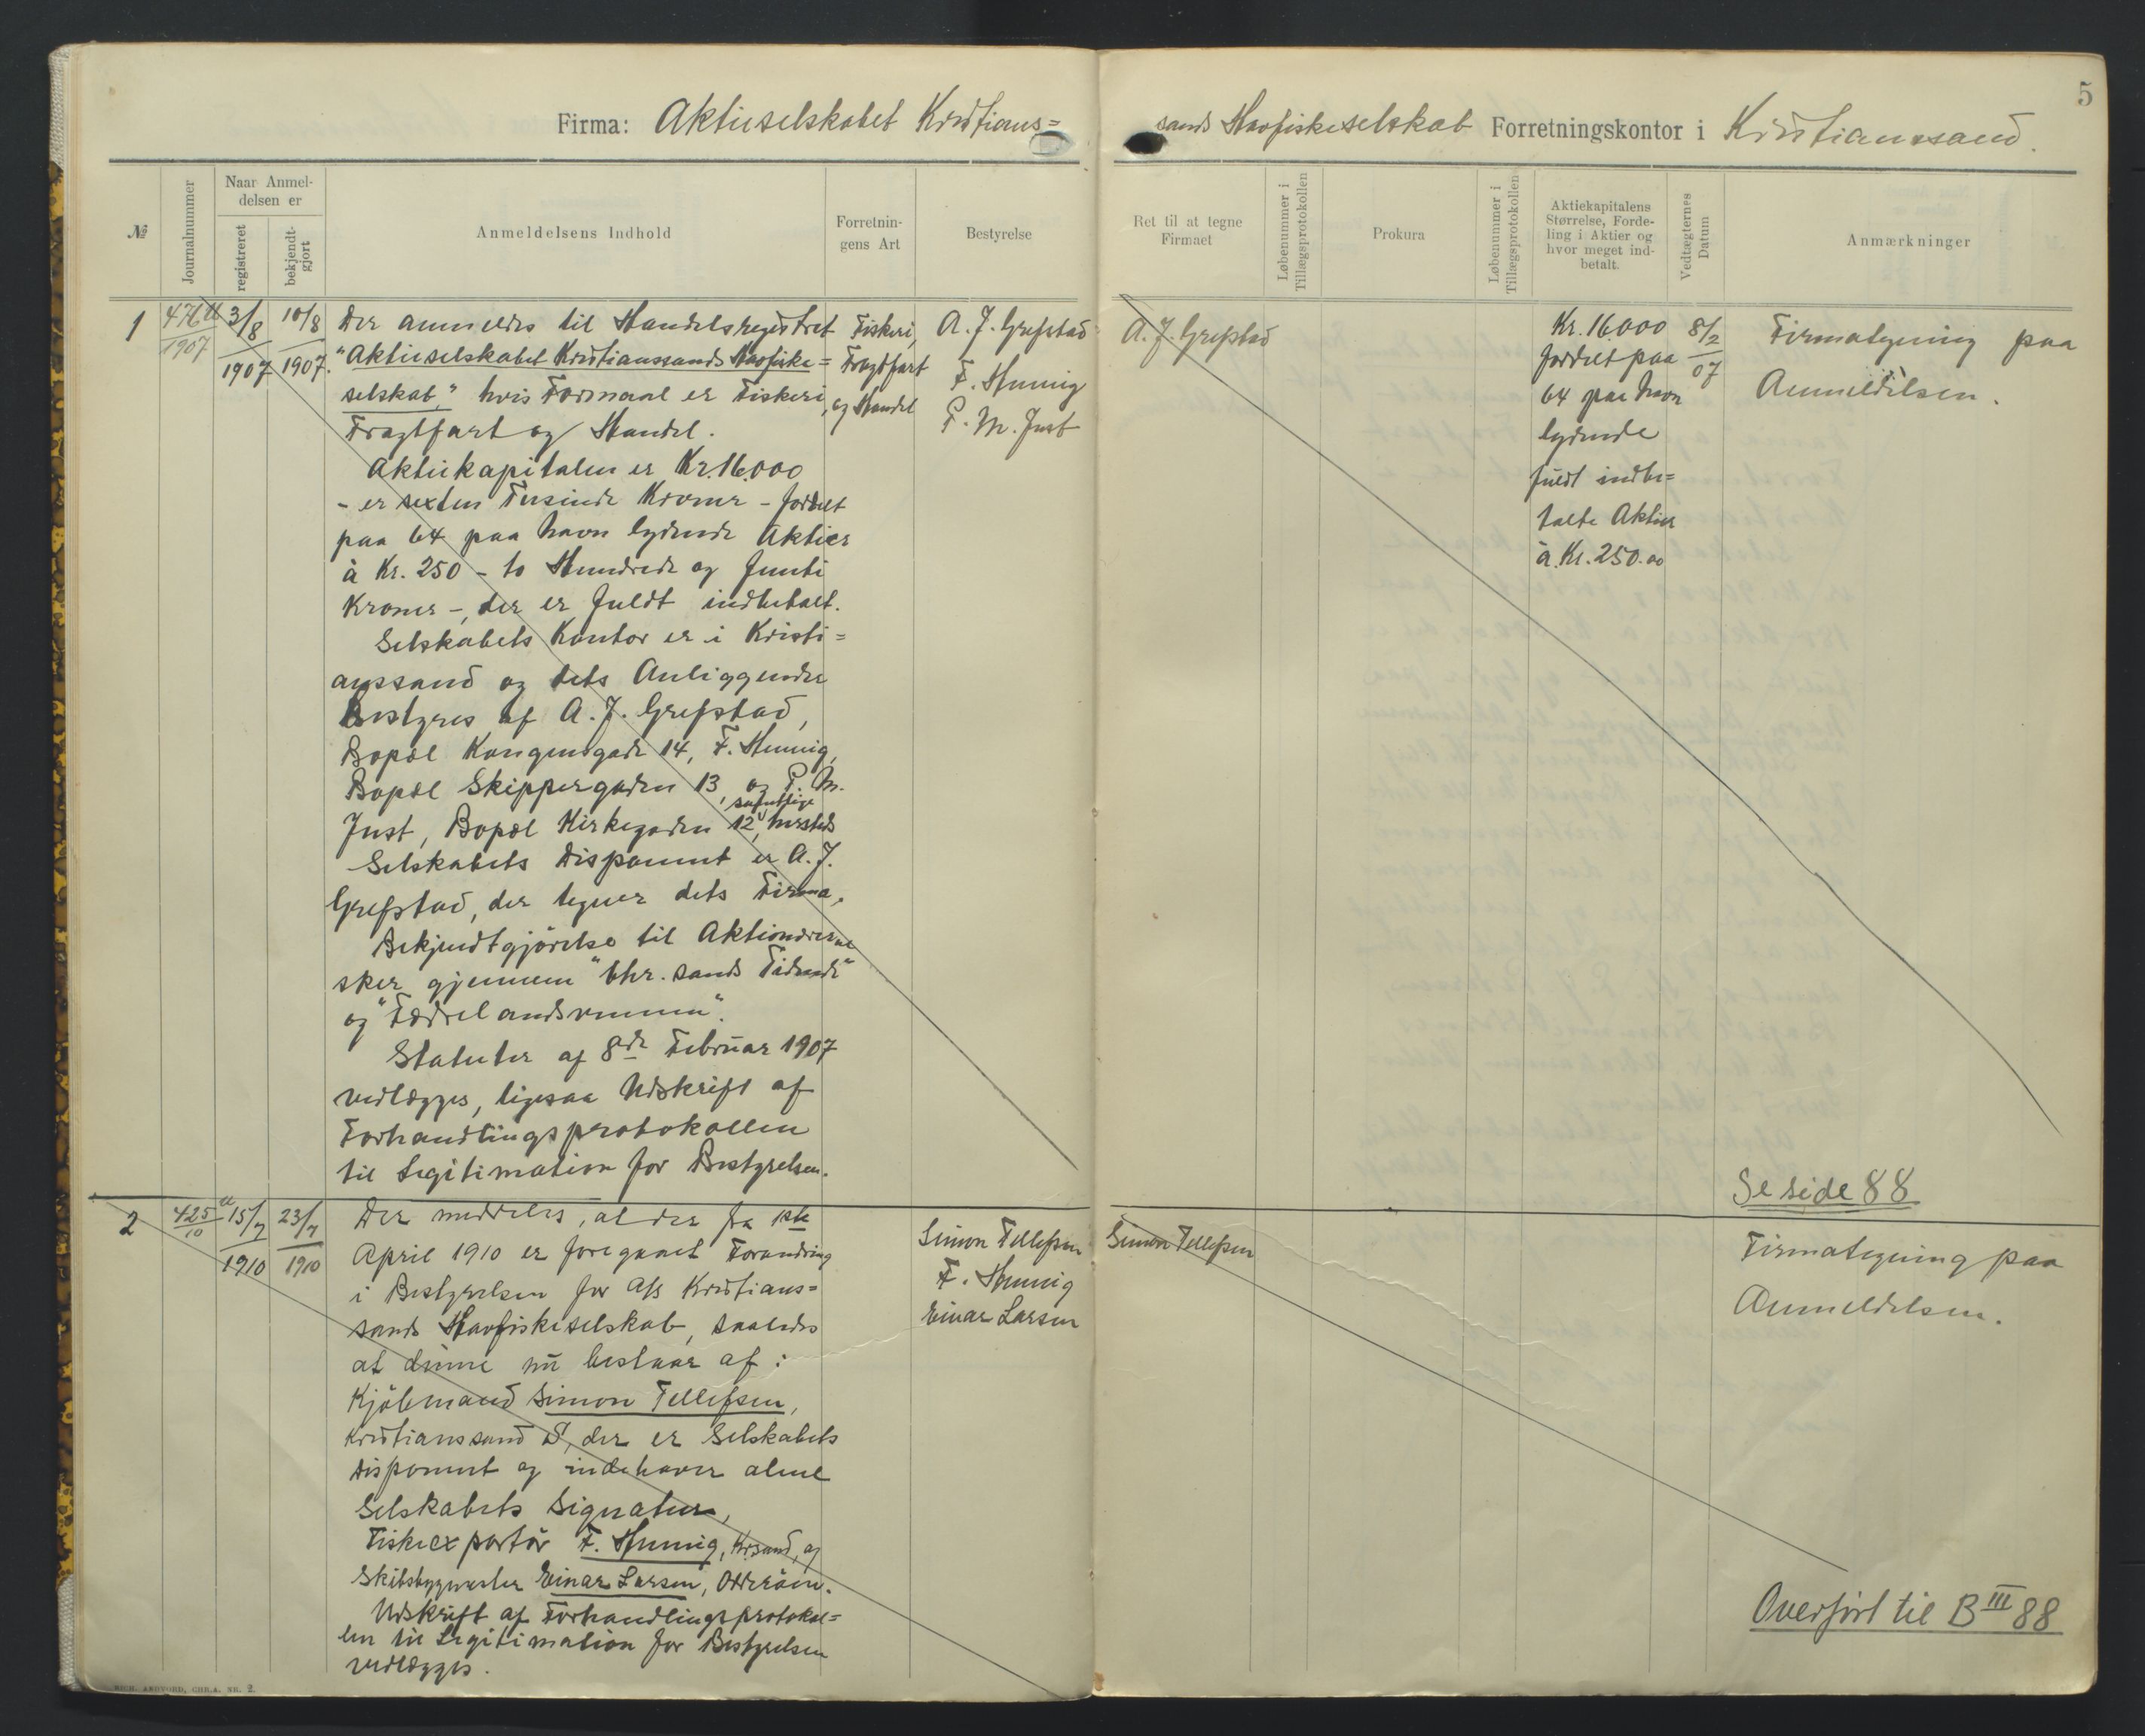 5
Firma: Aktieselskabet Kristians=
sands Havfiskeselskab Forretningskontor i Kristianssand.
№
Journalnummer
Naar Anmel-
delsen er
registreret
bekjendt-
gjort
Anmeldelsens Indhold
Forretnin-
gens Art
Bestyrelse
Ret til at tegne
Firmaet
Løbenummer i
Tillægsprotokollen
Prokura
Løbenummer i
Tillægsprotokollen
Aktiekapitalens
Størrelse, Forde-
ling i Aktier og
hvor meget ind-
betalt.
Vedtægternes
Datum
Anmærkninger
1
476
1907
3/8
1907
10/8
1907.
Der anmeldes til Handelsregistret
"Aktieselskabet Kristianssands Havfiske=
selskab," hvis Formaal er Fiskeri,
Fragtfart og Handel.
Aktiekapitalen er Kr. 16.000
- er sexten Tusinde Kroner - fordelt
paa 64 paa Navn lydende Aktier
à Kr. 250 - to Hundrede og femti
Kroner -, der er fuldt indbetalt.
Selskabets Kontor er i Kristi=
anssand og dets Anliggender
bestyres af A. J. Grefstad,
Bopæl Kongensgade 14, F. Hennig,
Bopæl Skippergaden 13, og P. M.
Just, Bopæl Kirkegaden 12, samtlige hersteds
Selskabets Disponent er A. J.
Grefstad, der tegner dets Firma.
Bekjendtgjörelse til Aktionærerne
sker gjennem "Chr.sands Tidende"
og "Fædrelandsvennen".
Statuter af 8de Februar 1907
vedlægges, ligesaa Udskrift af
Forhandlingsprotokollen
til Legitimation for Bestyrelsen.
Fiskeri,
Fragtfart
og Handel
A. J. Grefstad
F. Hennig
P. M. Just
A. J. Grefstad
Kr. 16.000
fordelt paa
64 paa Navn
lydende
fuldt indbe=
talte Aktier
à Kr. 250.00
8/2
07
Firmategning paa
Anmeldelsen.
Se side 88
2
425
10
15/7
1910
23/7
1910
Der meddeles, at der fra 1ste
April 1910 er foregaaet Forandring
i Bestyrelsen for A/S Kristians=
sands Havfiskeselskab, saaledes
at denne nu bestaar af:
Kjöbmand Simon Tellefsen,
Kristianssand S, der er Selskabets
Disponent og indehaver alene
Selskabets Signatur,
Fiskeexportör F. Hennig, Kr.sand, og
Skibsbygmester Einar Larsen, Odderöen.
Udskrift af Forhandlingsprotokol=
len til Legitimation for Bestyrelsen
vedlægges.
Simon Tellefsen
F. Hennig
Einar Larsen
Simon Tellefsen
Firmategning paa
Anmeldelsen.
Overfört til B III 88
CHR.A. NR. 2.